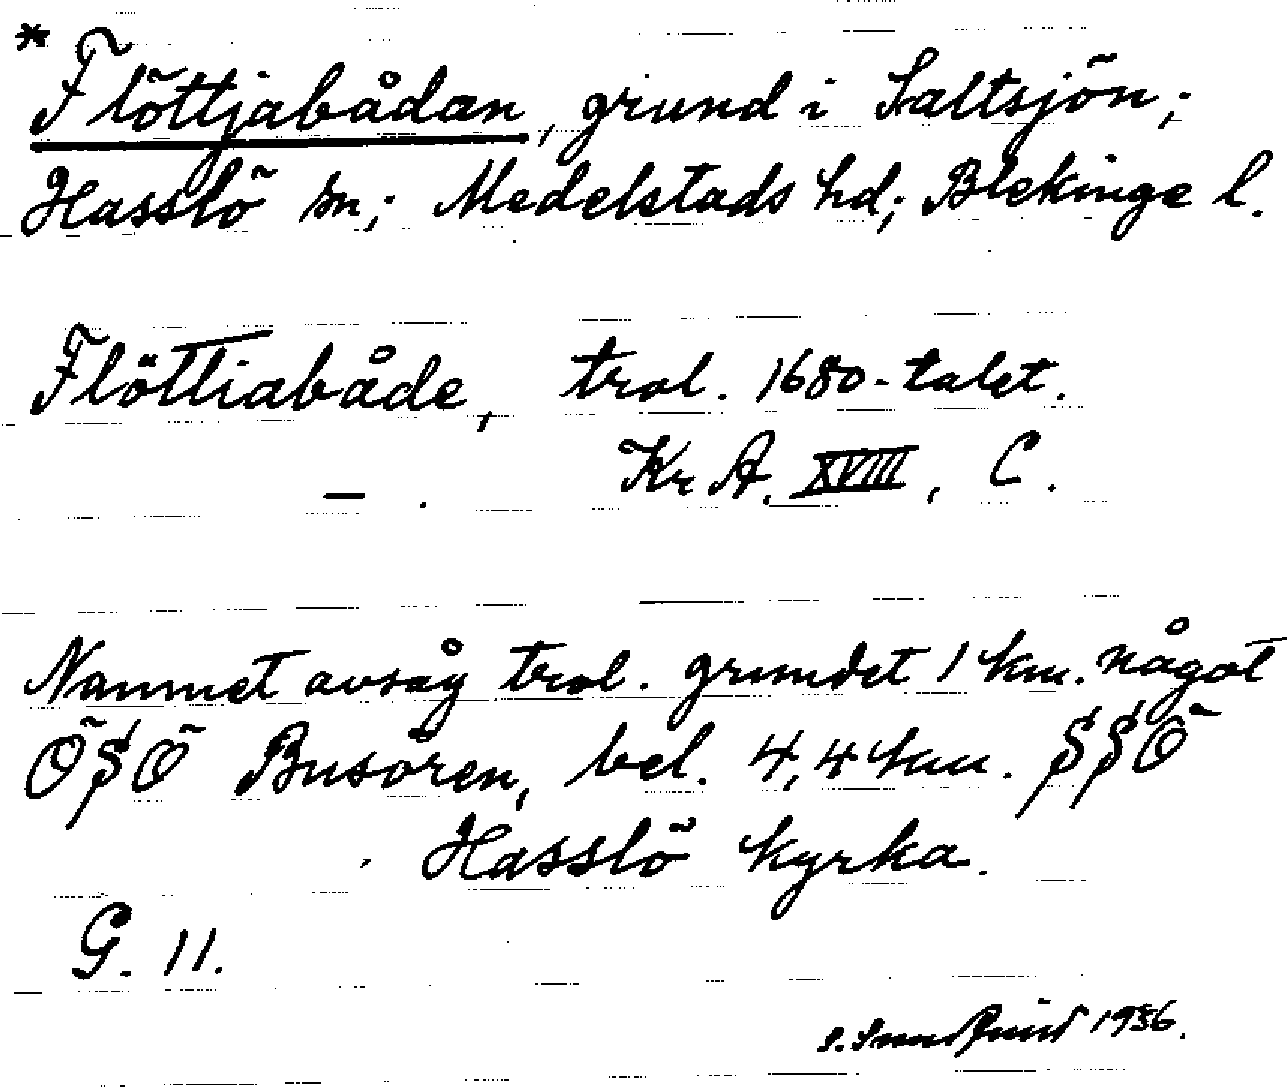 * Flöttjabådan, grund i Saltsjön;
Hasslö sn; Medelstads hd; Blekinge l.
Flöttiabåde, trol. 1680-talet.
— . Kr A. XVIII, C.
Namnet avsåg trol. grundet 1 km. något
ÖSÖ Busören, bel. 4,4 km. SSÖ
Hasslö kyrka.
G. 11.
1936.